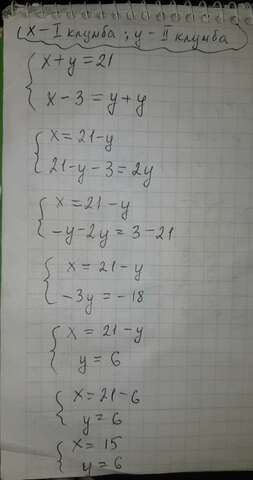 x – I клумба; y – II клумба
x + y = 21
x – 3 = y + y
x = 21 – y
21 – y – 3 = 2y
x = 21 – y
–y – 2y = 3 – 21
x = 21 – y
–3y = –18
x = 21 – y
y = 6
x = 21 – 6
y = 6
x = 15
y = 6